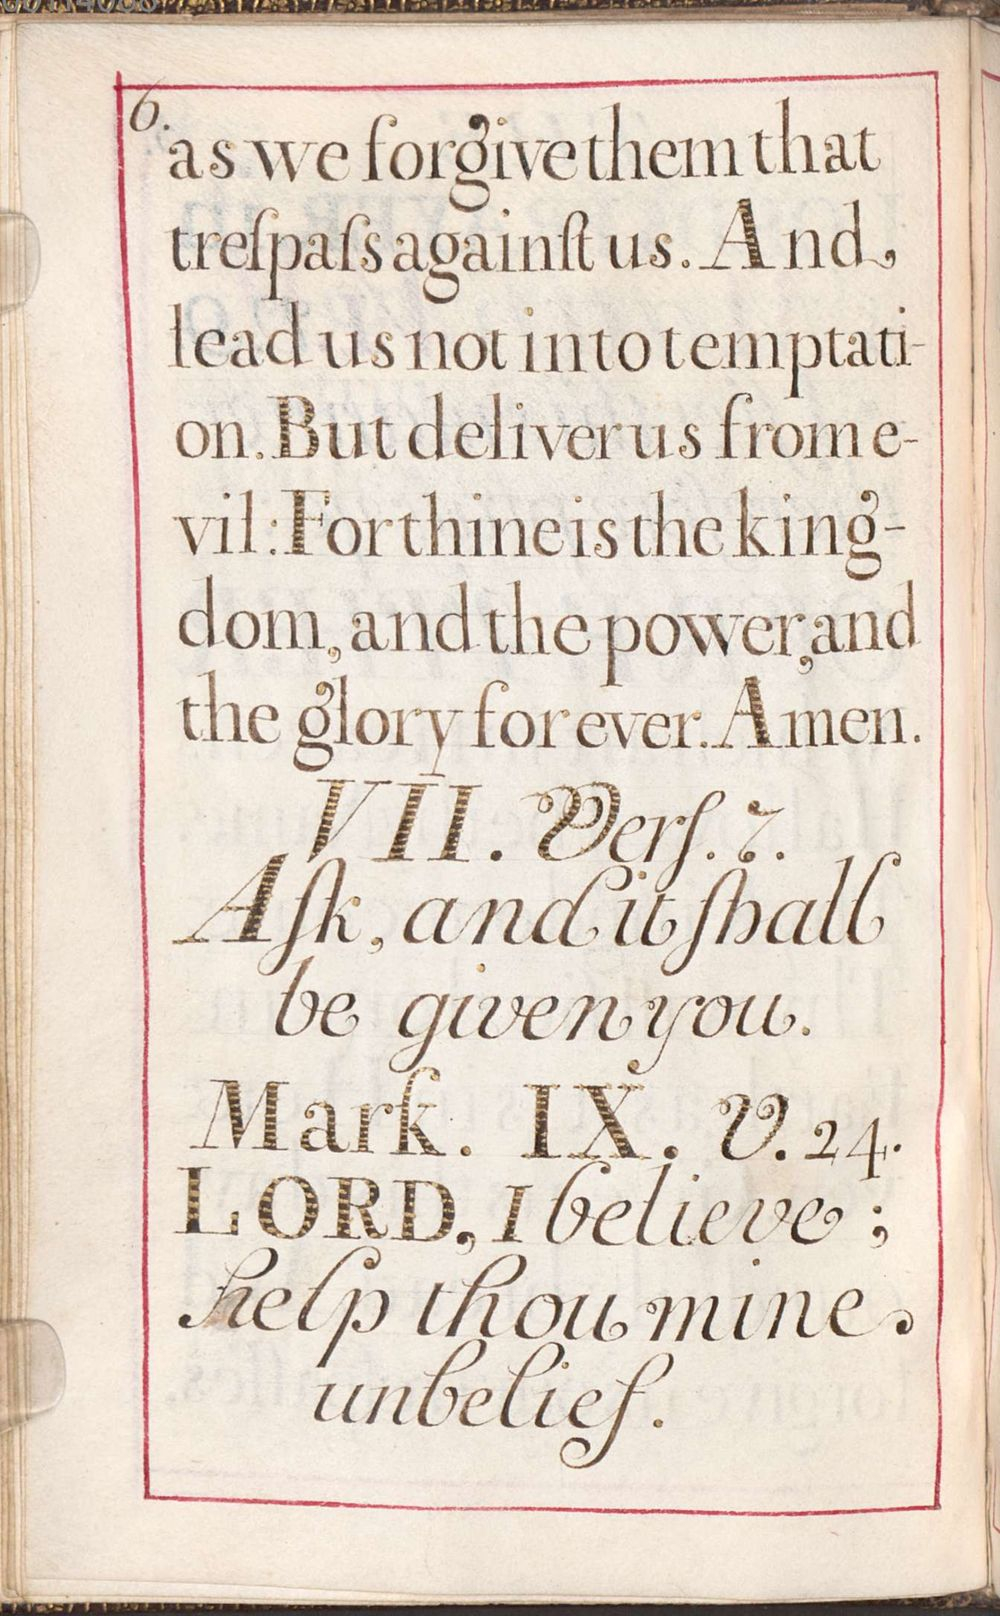 6.
as we forgive them that
treſpaſs againſt us. And
lead us not into temptati-
on. But deliver us from e-
vil: For thine is the king-
dom, and the power, and
the glory for ever. Amen.
VII. Verſ. 7.
Aſk, and it ſhall
be given you.
Mark. IX. V. 24.
LORD, I believe;
help thou mine
unbelief.